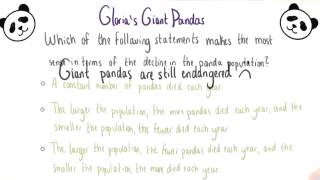 Gloria's Giant Pandas
Which of the following statements makes the most
sense in terms of the decline in the panda population?
Giant pandas are still endangered
A constant number of pandas died each year
The larger the population, the more pandas died each year, and the
smaller the population, the fewer died each year
The larger the population, the fewer pandas died each year, and the
smaller the population, the more died each year.